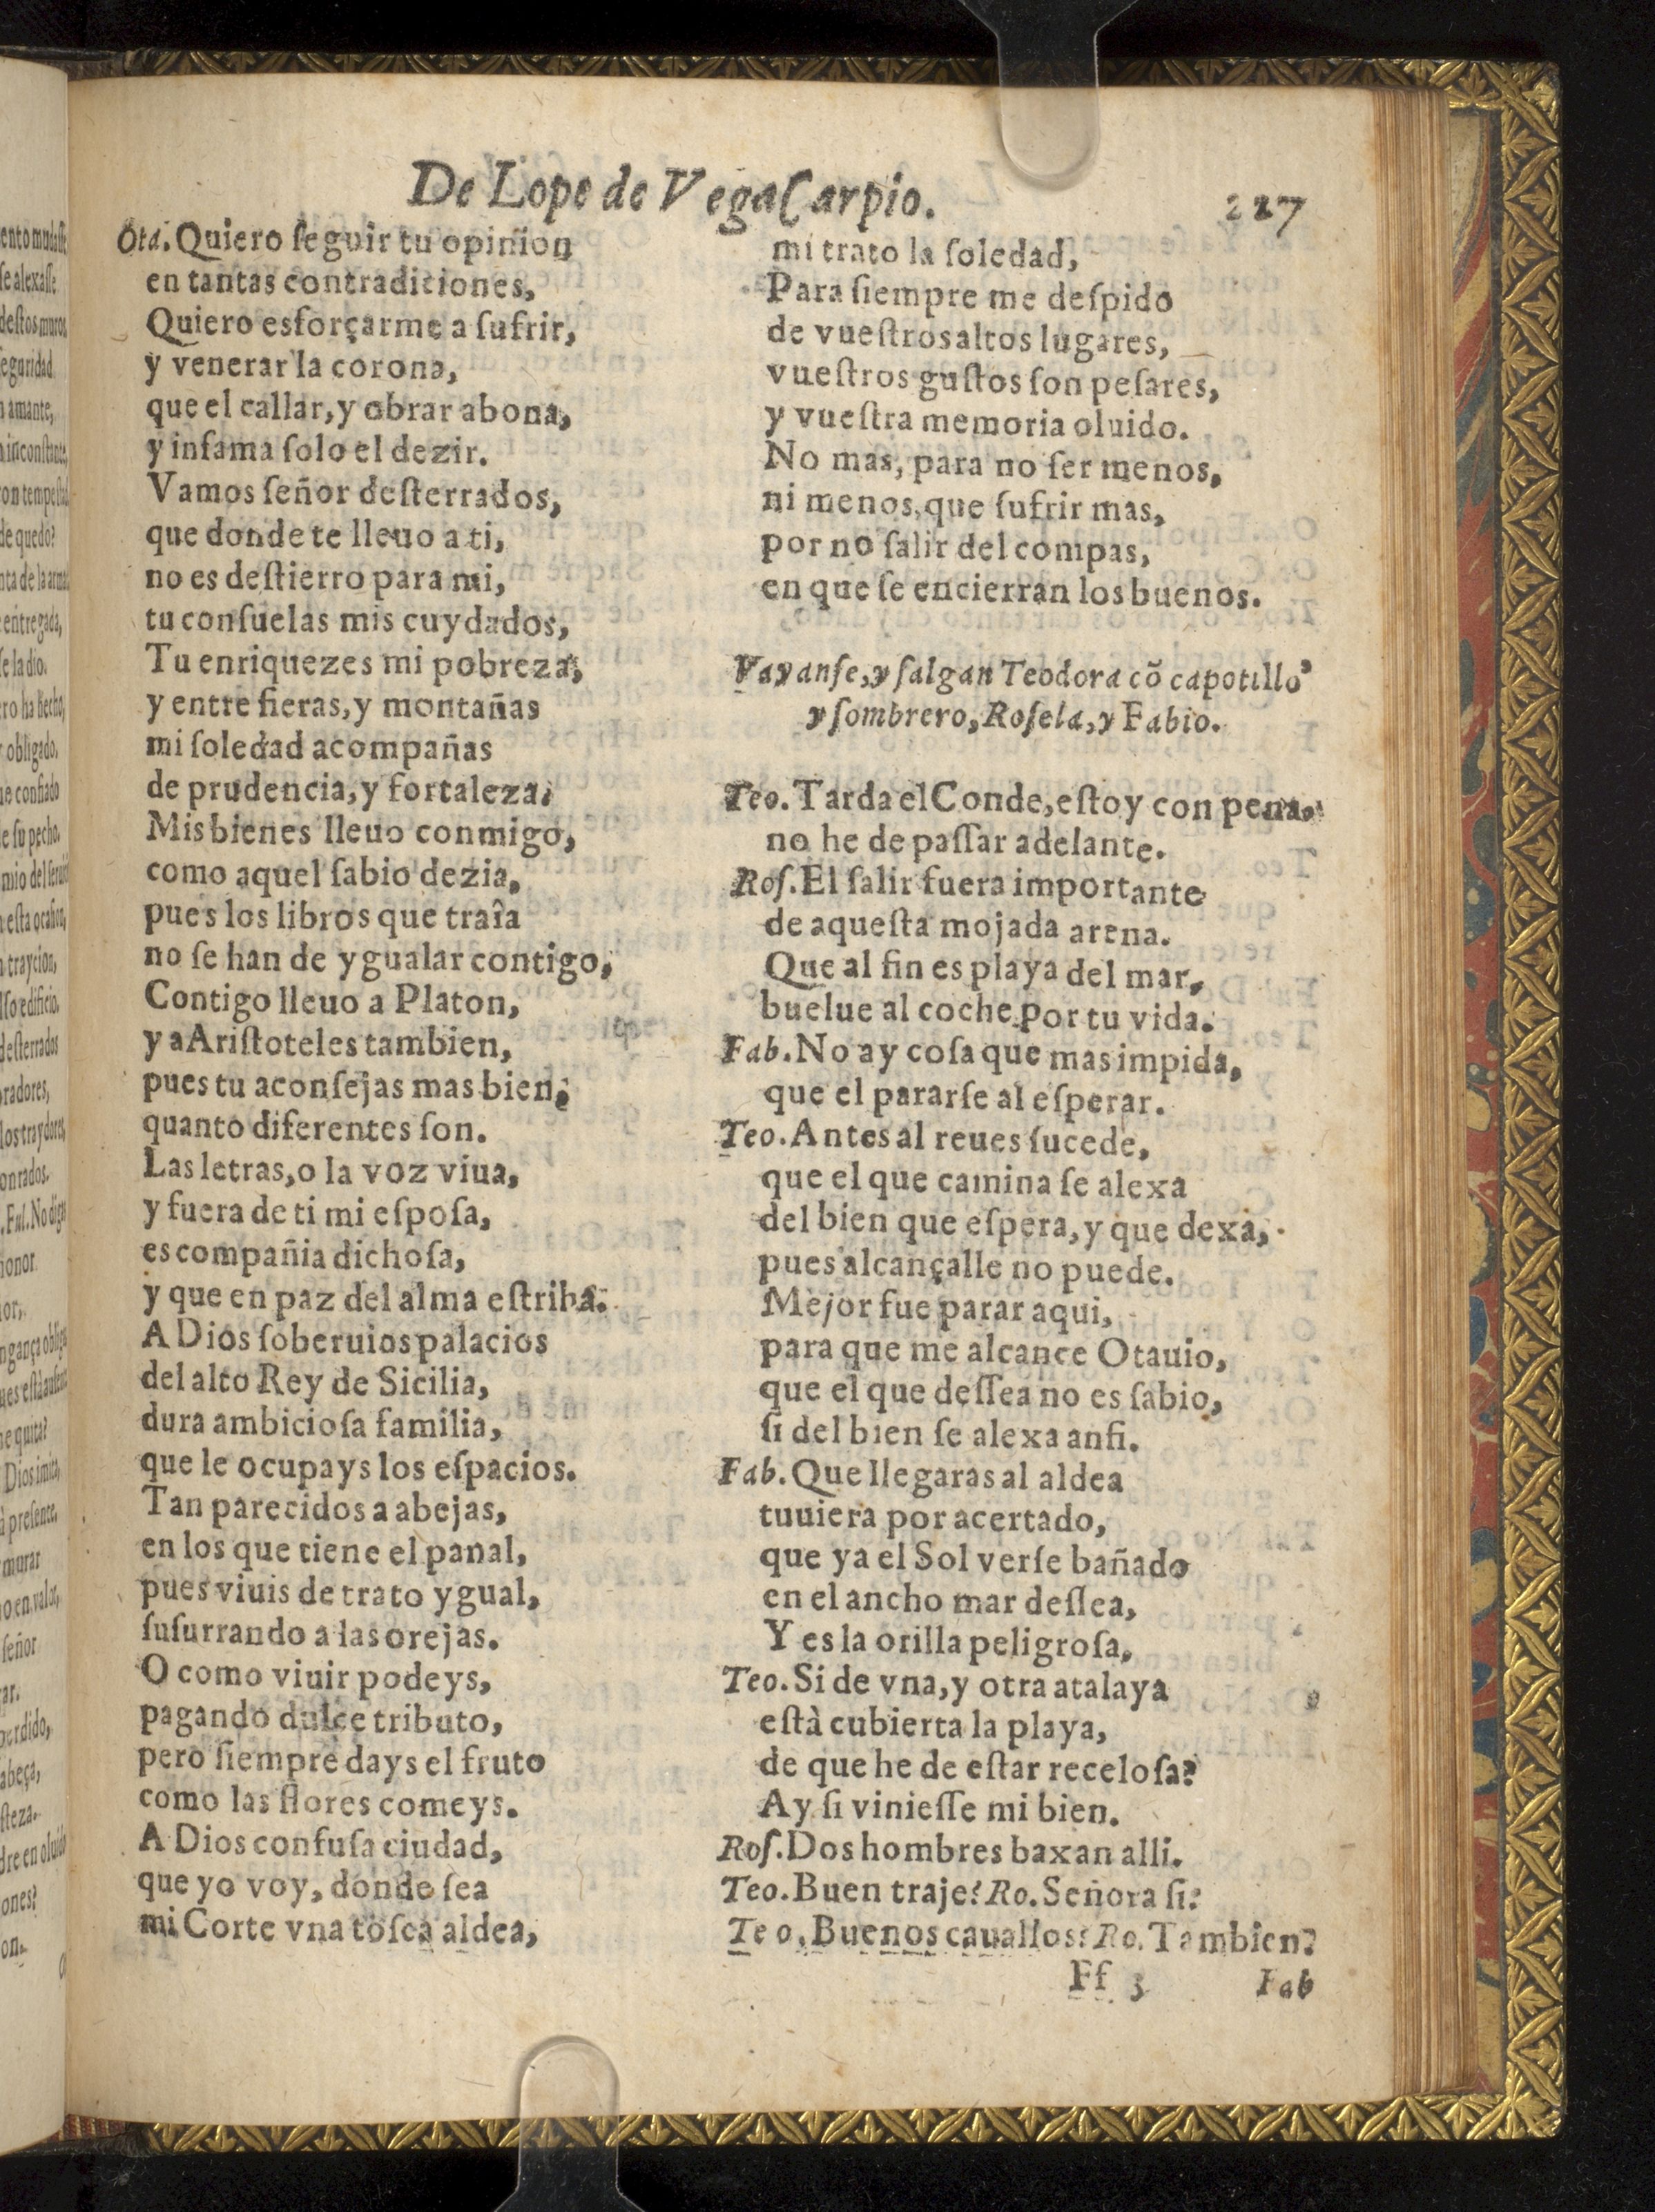 De Lope de Vega Carpio. 227
Ota. Quiero ſeguir tu opinion
en tantas contradiciones,
Quiero esforçarme a ſufrir,
y venerar la corona,
que el callar, y obrar abona,
y infama ſolo el dezir.
Vamos ſeñor deſterrados,
que donde te lleuo a ti,
no es deſtierro para mi,
tu conſuelas mis cuydados,
Tu enriquezes mi pobreza,
y entre fieras, y montañas
mi ſoledad acompañas
de prudencia, y fortaleza.
Mis bienes lleuo conmigo,
como aquel ſabio dezia,
pues los libros que traîa
no ſe han de ygualar contigo,
Contigo lleuo a Platon,
y a Ariſtoteles tambien,
pues tu aconſejas mas bien,
quanto diferentes ſon.
Las letras, o la voz viua,
y fuera de ti mi eſpoſa,
es compañia dichoſa,
y que en paz del alma eſtriba.
A Dios ſoberuios palacios
del alto Rey de Sicilia,
dura ambicioſa familia,
que le ocupays los eſpacios.
Tan parecidos a abejas,
en los que tiene el panal,
pues viuis de trato ygual,
ſuſurrando a las orejas.
O como viuir podeys,
pagando dulce tributo,
pero ſiempre days el fruto
como las flores comeys.
A Dios confuſa ciudad,
que yo voy, donde ſea
mi Corte vna toſca aldea,
mi trato la ſoledad,
Para ſiempre me deſpido
de vueſtros altos lugares,
vueſtros guſtos ſon peſares,
y vueſtra memoria oluido.
No mas, para no ſer menos,
ni menos, que ſufrir mas,
por no ſalir del compas,
en que ſe encierran los buenos.
Vayanſe, y ſalgan Teodora cõ capotillo
y ſombrero, Roſela, y Fabio.
Teo. Tarda el Conde, eſtoy con pena,
no he de paſſar adelante.
Roſ. El ſalir fuera importante
de aqueſta mojada arena.
Que al fin es playa del mar,
buelue al coche por tu vida.
Fab. No ay coſa que mas impida,
que el pararſe al eſperar.
Teo. Antes al reues ſucede,
que el que camina ſe alexa
del bien que eſpera, y que dexa,
pues alcançalle no puede.
Mejor fue parar aqui,
para que me alcance Otauio,
que el que deſſea no es ſabio,
ſi del bien ſe alexa anſi.
Fab. Que llegaras al aldea
tuuiera por acertado,
que ya el Sol verſe bañado
en el ancho mar deſſea,
Y es la orilla peligroſa,
Teo. Si de vna, y otra atalaya
eſtà cubierta la playa,
de que he de eſtar receloſa?
Ay ſi vinieſſe mi bien.
Roſ. Dos hombres baxan alli.
Teo. Buen traje? Ro. Señora ſi?
Teo. Buenos cauallos? Ro. Tambien?
Ff 3 Fab